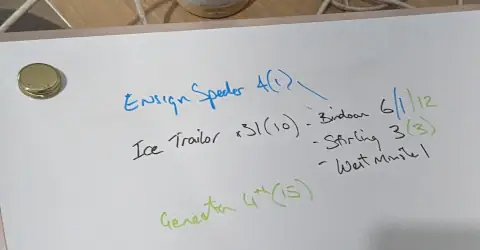 Ensign Speder 4(1)
Ice Trailor x31(10) - Bindoon 6/1/12
- Stirling 3(3)
- West Minste 1
Generator 4th(15)